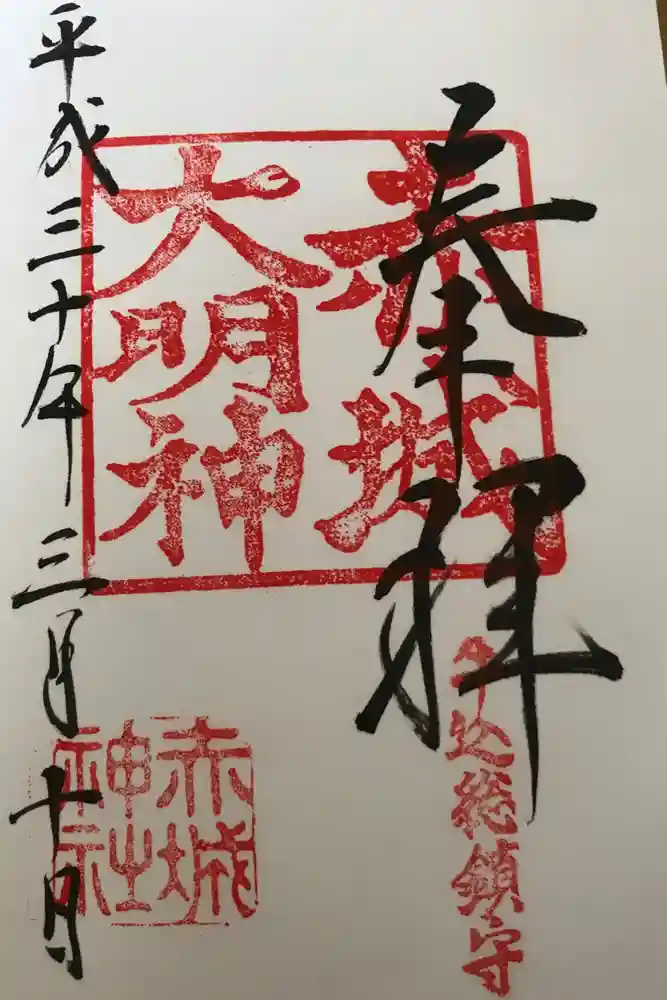 奉拝
牛込総鎮守
赤城
大明神
赤城
神社
平成三十年三月十日